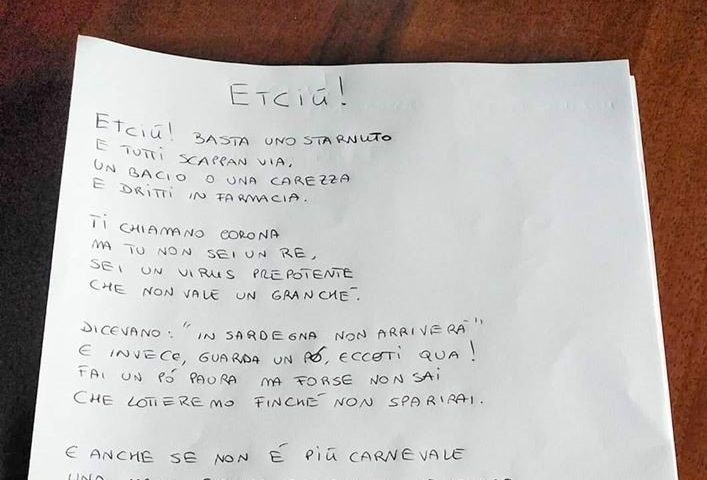 ETCIÚ!
ETCIÚ! BASTA UNO STARNUTO
E TUTTI SCAPPAN VIA,
UN BACIO O UNA CAREZZA
E DRITTI IN FARMACIA.
TI CHIAMANO CORONA
MA TU NON SEI UN RE,
SEI UN VIRUS PREPOTENTE
CHE NON VALE UN GRANCHÉ.
DICEVANO: "IN SARDEGNA NON ARRIVERÁ"
E INVECE, GUARDA UN PÓ, ECCOTI QUA!
FAI UN PÓ PAURA MA FORSE NON SAI
CHE LOTTEREMO FINCHÉ NON SPARIRAI.
E ANCHE SE NON É PIÚ CARNEVALE
UNA